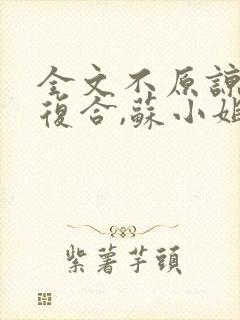 全文不原諒
復合,蘇小姐
紫薯芋頭